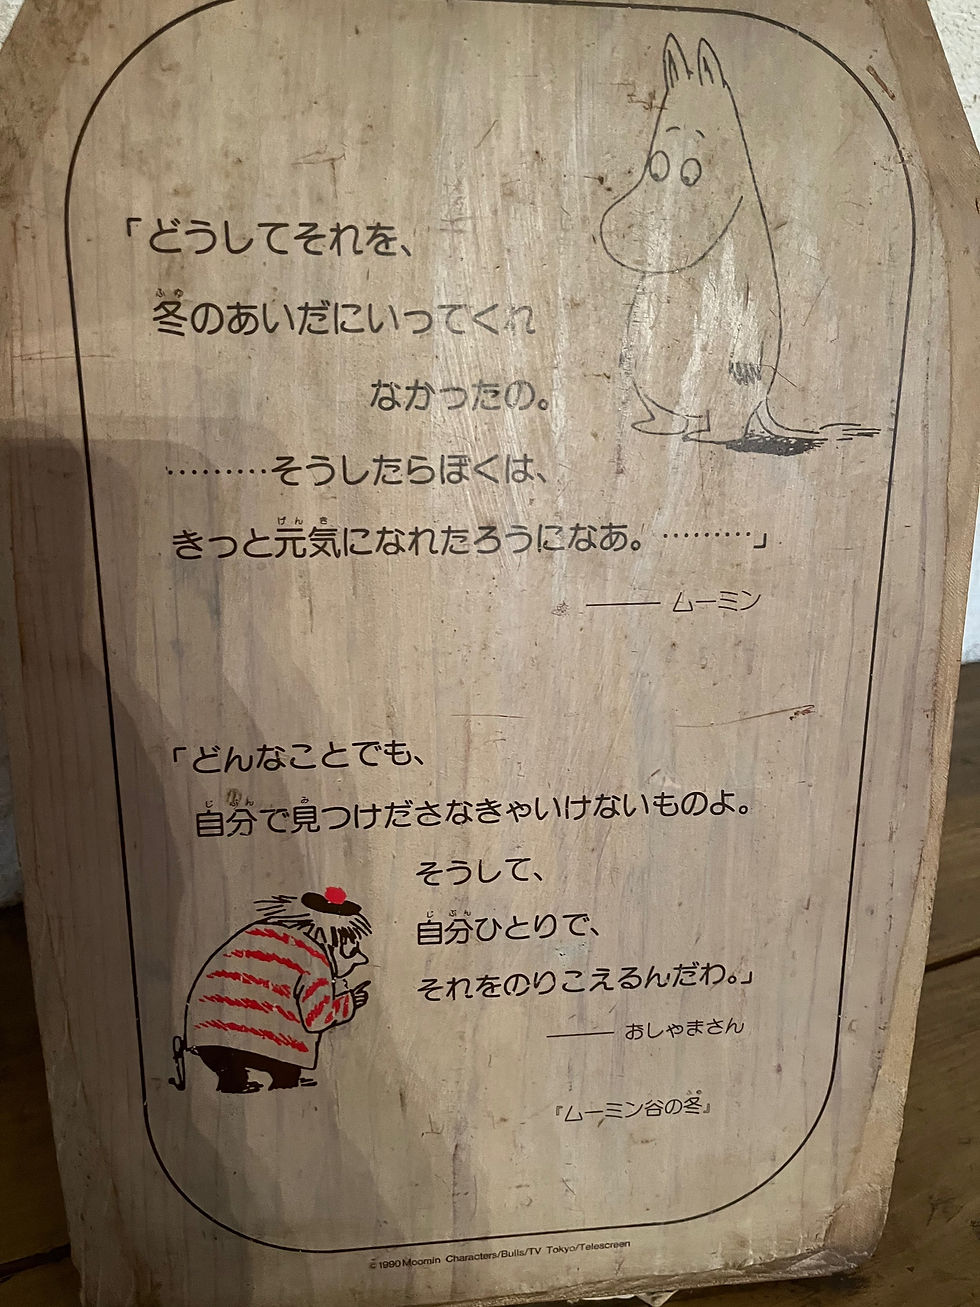 「どうしてそれを、
冬のあいだにいってくれ
なかったの。
………そうしたらぼくは、
きっと元気になれたろうになあ。………」
―― ムーミン
「どんなことでも、
自分で見つけださなきゃいけないものよ。
そうして、
自分ひとりで、
それをのりこえるんだわ。」
―― おしゃまさん
『ムーミン谷の冬』
©1990 Moomin Characters/Bulls/TV Tokyo/Telescreen